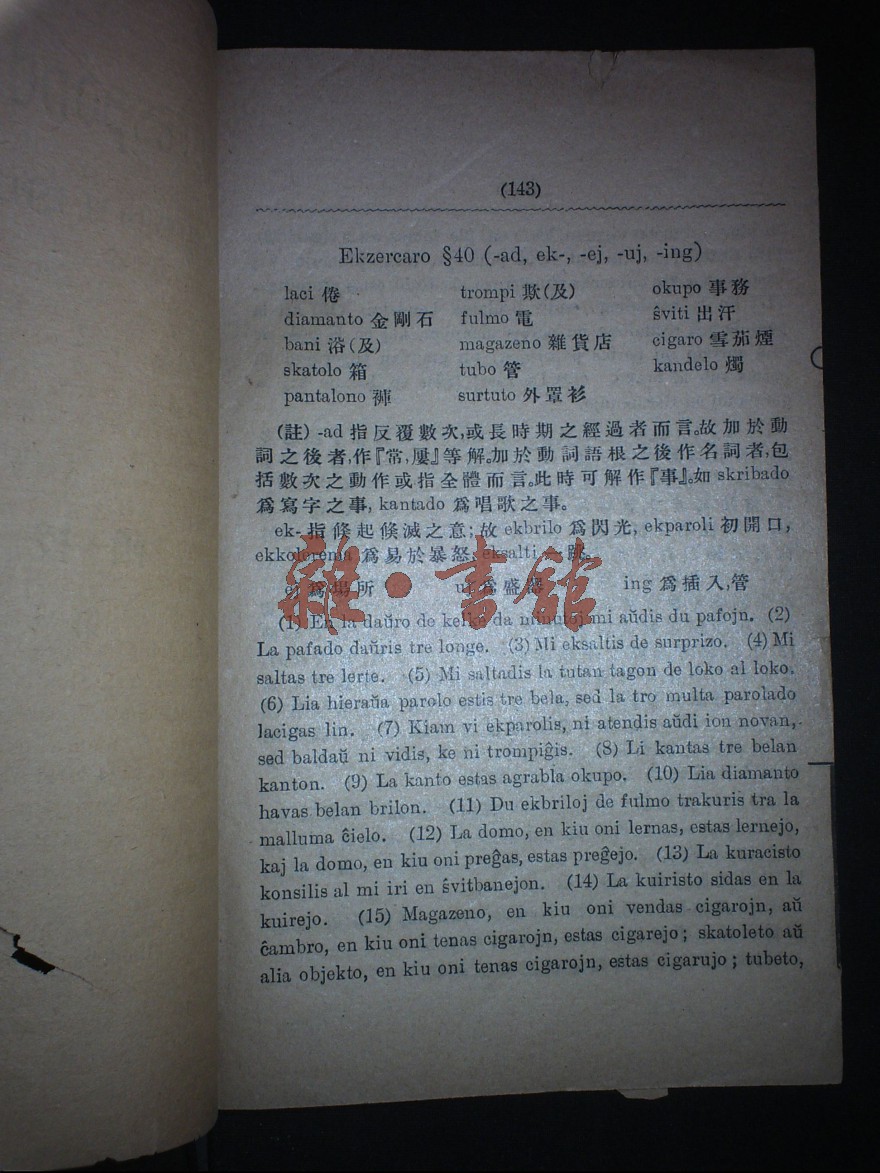 (143)
Ekzercaro §40 (-ad, ek-, -ej, -uj, -ing)
laci 倦 trompi 欺(及) okupo 事務
diamanto 金剛石 fulmo 電 ŝviti 出汗
bani 浴(及) magazeno 雜貨店 cigaro 雪茄煙
skatolo 箱 tubo 管 kandelo 燭
pantalono 褲 surtuto 外罩衫
(註) -ad 指反覆數次,或長時期之經過者而言。故加於動
詞之後者,作『常,屢』等解。加於動詞語根之後作名詞者,包
括數次之動作或指全體而言。此時可解作『事』。如 skribado
爲寫字之事, kantado 爲唱歌之事。
ek- 指倏起倏滅之意; 故 ekbrilo 爲閃光, ekparoli 初開口,
ekkolerema 爲易於暴怒, eksalti 一跳。
ej 爲場所 uj 爲盛器 ing 爲插入,管
雜·書館
(1) En la daŭro de kelke da minutoj mi aŭdis du pafojn. (2)
La pafado daŭris tre longe. (3) Mi eksaltis de surprizo. (4) Mi
saltas tre lerte. (5) Mi saltadis la tutan tagon de loko al loko.
(6) Lia hieraŭa parolo estis tre bela, sed la tro multa parolado
lacigas lin. (7) Kiam vi ekparolis, ni atendis aŭdi ion novan,
sed baldaŭ ni vidis, ke ni trompiĝis. (8) Li kantas tre belan
kanton. (9) La kanto estas agrabla okupo. (10) Lia diamanto
havas belan brilon. (11) Du ekbriloj de fulmo trakuris tra la
malluma ĉielo. (12) La domo, en kiu oni lernas, estas lernejo,
kaj la domo, en kiu oni preĝas, estas preĝejo. (13) La kuracisto
konsilis al mi iri en ŝvitbanejon. (14) La kuiristo sidas en la
kuirejo. (15) Magazeno, en kiu oni vendas cigarojn, aŭ
ĉambro, en kiu oni tenas cigarojn, estas cigarejo; skatoleto aŭ
alia objekto, en kiu oni tenas cigarojn, estas cigarujo; tubeto,